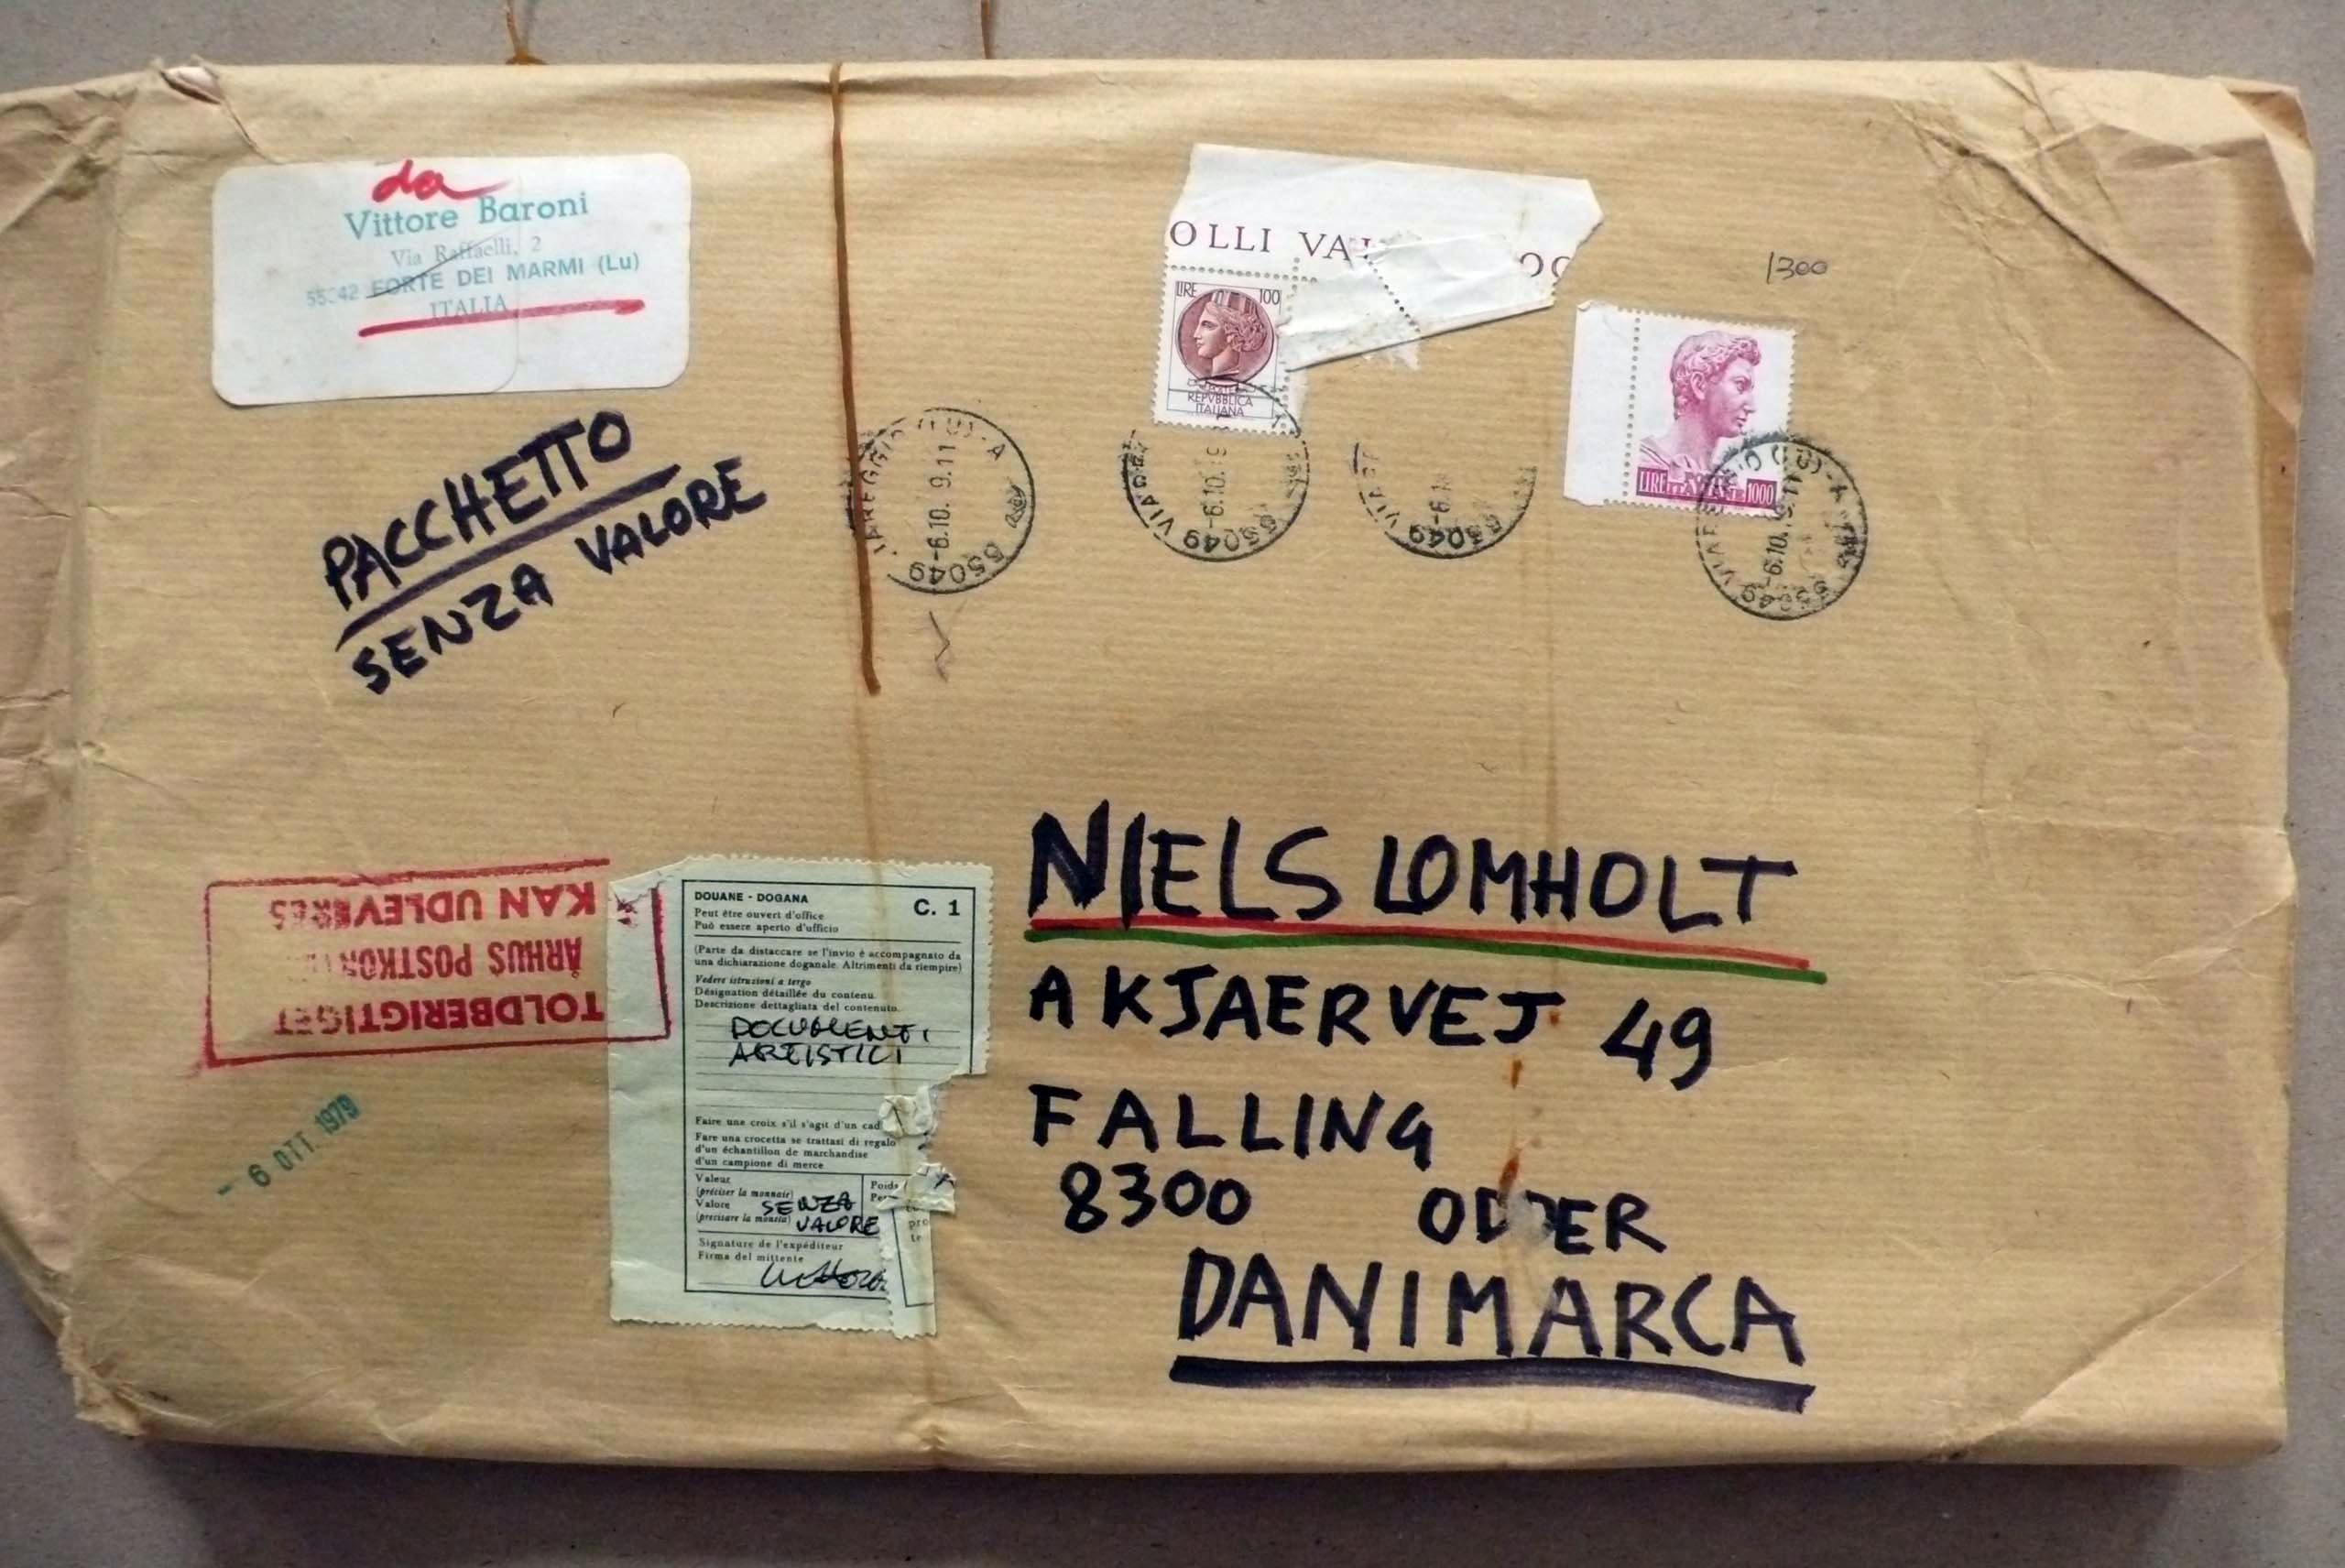 da
Vittore Baroni
Via Raffaelli, 2
55042 FORTE DEI MARMI (Lu)
ITALIA
PACCHETTO
SENZA VALORE
OLLI VA
1300
LIRE 100
REPVBBLICA
ITALIANA
LIRE 1000
VIAREGGIO (LU) - A
-6.10. 9.11
55049
55049 VIAR
-6.10.
VIAR
-6.1
55049
-6.10.
55049
NIELS LOMHOLT
AKJAERVEJ 49
FALLING
8300 ODDER
DANIMARCA
TOLDBERIGTIGET
ÅRHUS POSTKON
KAN UDLEVERES
-6 OTT 1979
DOUANE - DOGANA
C. 1
Peut être ouvert d'office
Può essere aperto d'ufficio
(Parte da distaccare se l'invio è accompagnato da
una dichiarazione doganale. Altrimenti da riempire)
Vedere istruzioni a tergo
Désignation détaillée du contenu.
Descrizione dettagliata del contenuto.
DOCUMENTI
ARTISTICI
Faire une croix s'il s'agit d'un cad
Fare una crocetta se trattasi di regalo
d'un échantillon de marchandise
d'un campione di merce
Valeur
(préciser la monnaie)
Valore
(precisare la moneta)
SENZA
VALORE
Poids
Pe
pro
tr
Signature de l'expéditeur
Firma del mittente